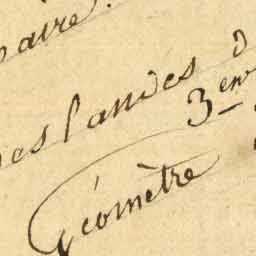 aire.
es landes d
3em
Géomètre